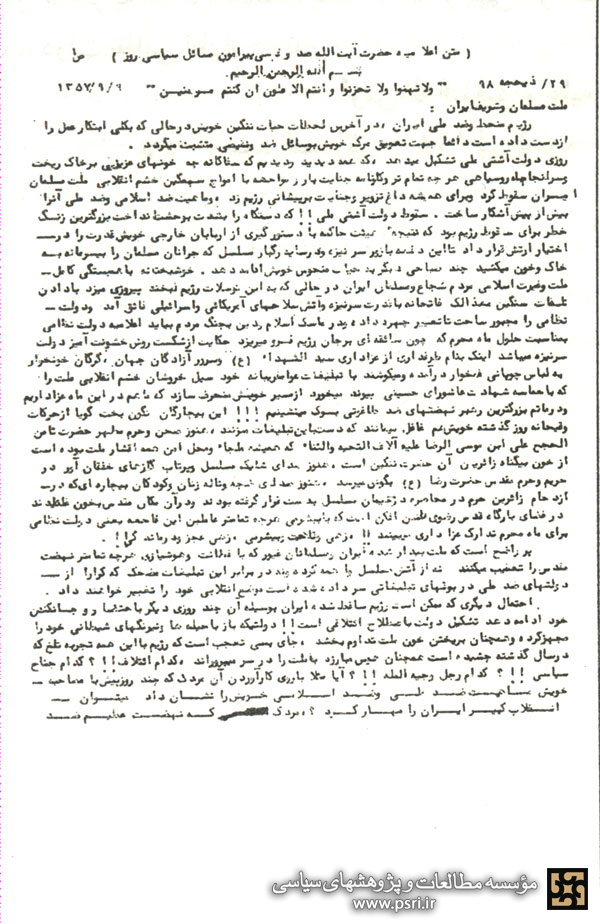 ( متن اعلامیه حضرت آیت الله صدوقی پیرامون مسائل سیاسی روز )
بسم الله الرحمن الرحیم
۲۹/ ذیحجه ۹۸ " ولا تهنوا ولا تحزنوا و انتم الاعلون ان کنتم مومنین " ۱۳۵۷/۹/۹
ملت مسلمان و شریف ایران :
رژیم منحط وضد ملی ایران ، در آخرین لحظات حیات ننگین خویش درحالی که بکلی ابتکار عمل را
ازدست داده است دائما جهت تعویق مرک خویش بوسائل ضد ونقیضی متشبث میگردد .
روزی دولت آشتی ملی تشکیل میدهد ، که همه دیدید و دیدیم که سفاکانه چه خونهای عزیزیی برخاک ریخت
وسرانجام با روسیاهی هرچه تمام تر وکارنامه جنایت بار در مواجهه با امواج سهمگین خشم انقلابی ملت مسلمان
ایران سقوط کرد وبرای همیشه داغ تزویر وجنایت برپیشانی رژیم زد ، وماهیت ضد اسلامی وضد ملی آنرا
بیش از پیش آشکار ساخت . سقوط دولت آشتی ملی !! که دستگاه را بشدت بوحشت انداخت بزرگترین زنگ
خطر برای سقوط رژیم بود که نتیجه هیئت حاکمه با دستور گیری از اربابان خارجی خویش قدرت را در
اختیار ارتش قرار داد تا این دفعه با زور سرنیزه ودر سایه رگبار مسلسل که جوانان مسلمان را بیرحمانه به
خاک وخون میکشید چند صباحی دیگر به حیات منحوس خویش ادامه دهد . خوشبختانه با همبستگی کامل
ملت وغیرت اسلامی مردم شجاع ومسلمان ایران در حالی که به این توسلات رژیم نیخند پیروزی میزد با دادن
تلفات سنگین معذالک فاتحانه باقدرت سرنیزه وآتش سلاحهای آمریکائی واسرائیلی فائق آمد ودولت
نظامی را مجبور ساخت تا تغییر چهره داده ودر ماسک اسلام ودین بجنگ مردم بیاید اعلامیه دولت نظامی
بمناسبت حلول ماه محرم که چون صاعقه ای برجان رژیم فرو میریزد حکایت از شکست روش خشونت آمیز دولت
سرنیزه میباشد اینک بنام طرفداری از عزاداری سید الشهداء (ع) وسرور آزادگان جهان ، گرگان خونخوار
به لباس چوپانی غمخوار درآمده ومیکوشند با تبلیغات عوامفریبانه خود سیل خروشان خشم انقلابی ملت را
که با حماسه شهادت عاشورای حسینی پیوند میخورد ازمسیر خویش منحرف سازد که ما هم در این ماه عزاداریم
ودر ماتم بزرگترین رهبر نهضتهای ضد طاغوتی بسوک مینشینیم !!! این بیچارگان نگون بخت گویا از حرکات
وقیحانه روز گذشته خویش هم غافل میمانند که دست باین تبلیغات میزنند ، هنوز صحن وحرم مطهر حضرت ثامن
الحجج علی ابن موسی الرضا علیه آلاف التحیه والثناء که همیشه ملجاء ومحل امن همه اقشار ملت بوده است
از خون بیگناه زائرین آن حضرت ننگین است ، هنوز صدای شلیک مسلسل وپرتاب گازهای خفقان آور در
حریم وحرم مقدس حضرت رضا (ع) بگوش میرسد ، هنوز صدای ضجه وناله زنان وکودکان بیچاره ای که در
ازدحام زائرین حرم در محاصره دژخیمان مسلسل بدست قرار گرفته بودند ودر آن مکان مقدس بخون غلطیدند
در فضای بارگاه قدس رضوی طنین افکن است که با بیشرمی هرچه تمامتر عاملین این فاجعه یعنی دولت نظامی
برای ماه محرم تدارک عزاداری میبینند !! وزهی وقاحت وبیشرمی . زهی عجز ودرماندگی ! .
پر واضح است که ملت بیدار شده ایران ومسلمانان غیور که با فطانت وهوشیاری هرچه تمامتر نهضت
مقدس را تعقیب میکنند نه از آتش مسلسل واهمه کرده ونه در برابر این تبلیغات مضحک که کرارا از
دولتهای ضد ملی در بوقهای تبلیغاتی سرداده شده است موضع انقلابی خود را تغییر خواهند داد .
احتمال دیگری که ممکن است رژیم ساقط شده ایران بوسیله آن چند روزی دیگر با احتضار و جانکندن
خود ادامه دهد تشکیل دولت با صطلاح ائتلافی است !! دولتیکه باز با حیله ها ونیرنگهای شیطانی خود را
مجهز کرده وهمچنان بریختن خون ملت تداوم بخشد . جای بسی تعجب است که رژیم با این همه تجربه تلخ که
در سال گذشته چشیده است همچنان هوس مبارزه با ملت را در سر میپروراند ، کدام ائتلاف !! ؟ کدام جناح
سیاسی !! ؟ کدام رجل وجیه المله !! ؟ آیا مثلا با روی کارآوردن آن مردک که چند روز پیش با مصاحبه
خویش ماهیت ضد ملی وضد اسلامی خویش را نشان داد میتوان
انقلاب کبیر ایران را مهار کرد ؟ ، مردک که نهضت عظیم ضد
مؤسسه مطالعات و پژوهشهای سیاسی
www.psri.ir